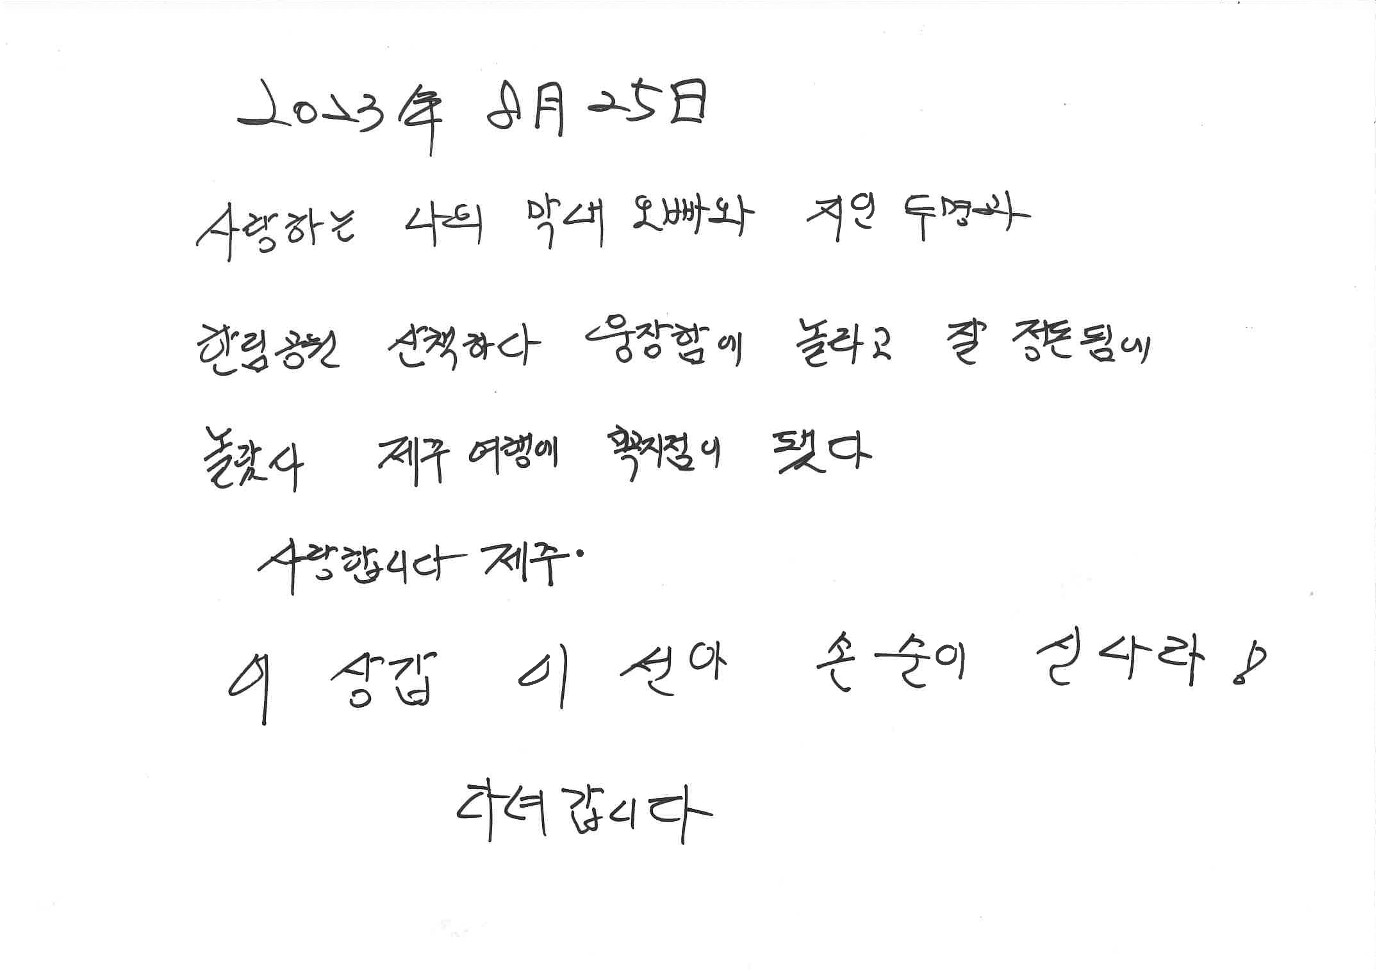 2023年 8月 25日
사랑하는 나의 막내 오빠와 지인 두명과
한림공원 산책하다 웅장함에 놀라고 잘 정돈됨에
놀랐사 제주 여행에 목지점이 됐다
사랑합니다 제주.
이 상갑 이 선아 손 순이 신사라!
다녀갑니다